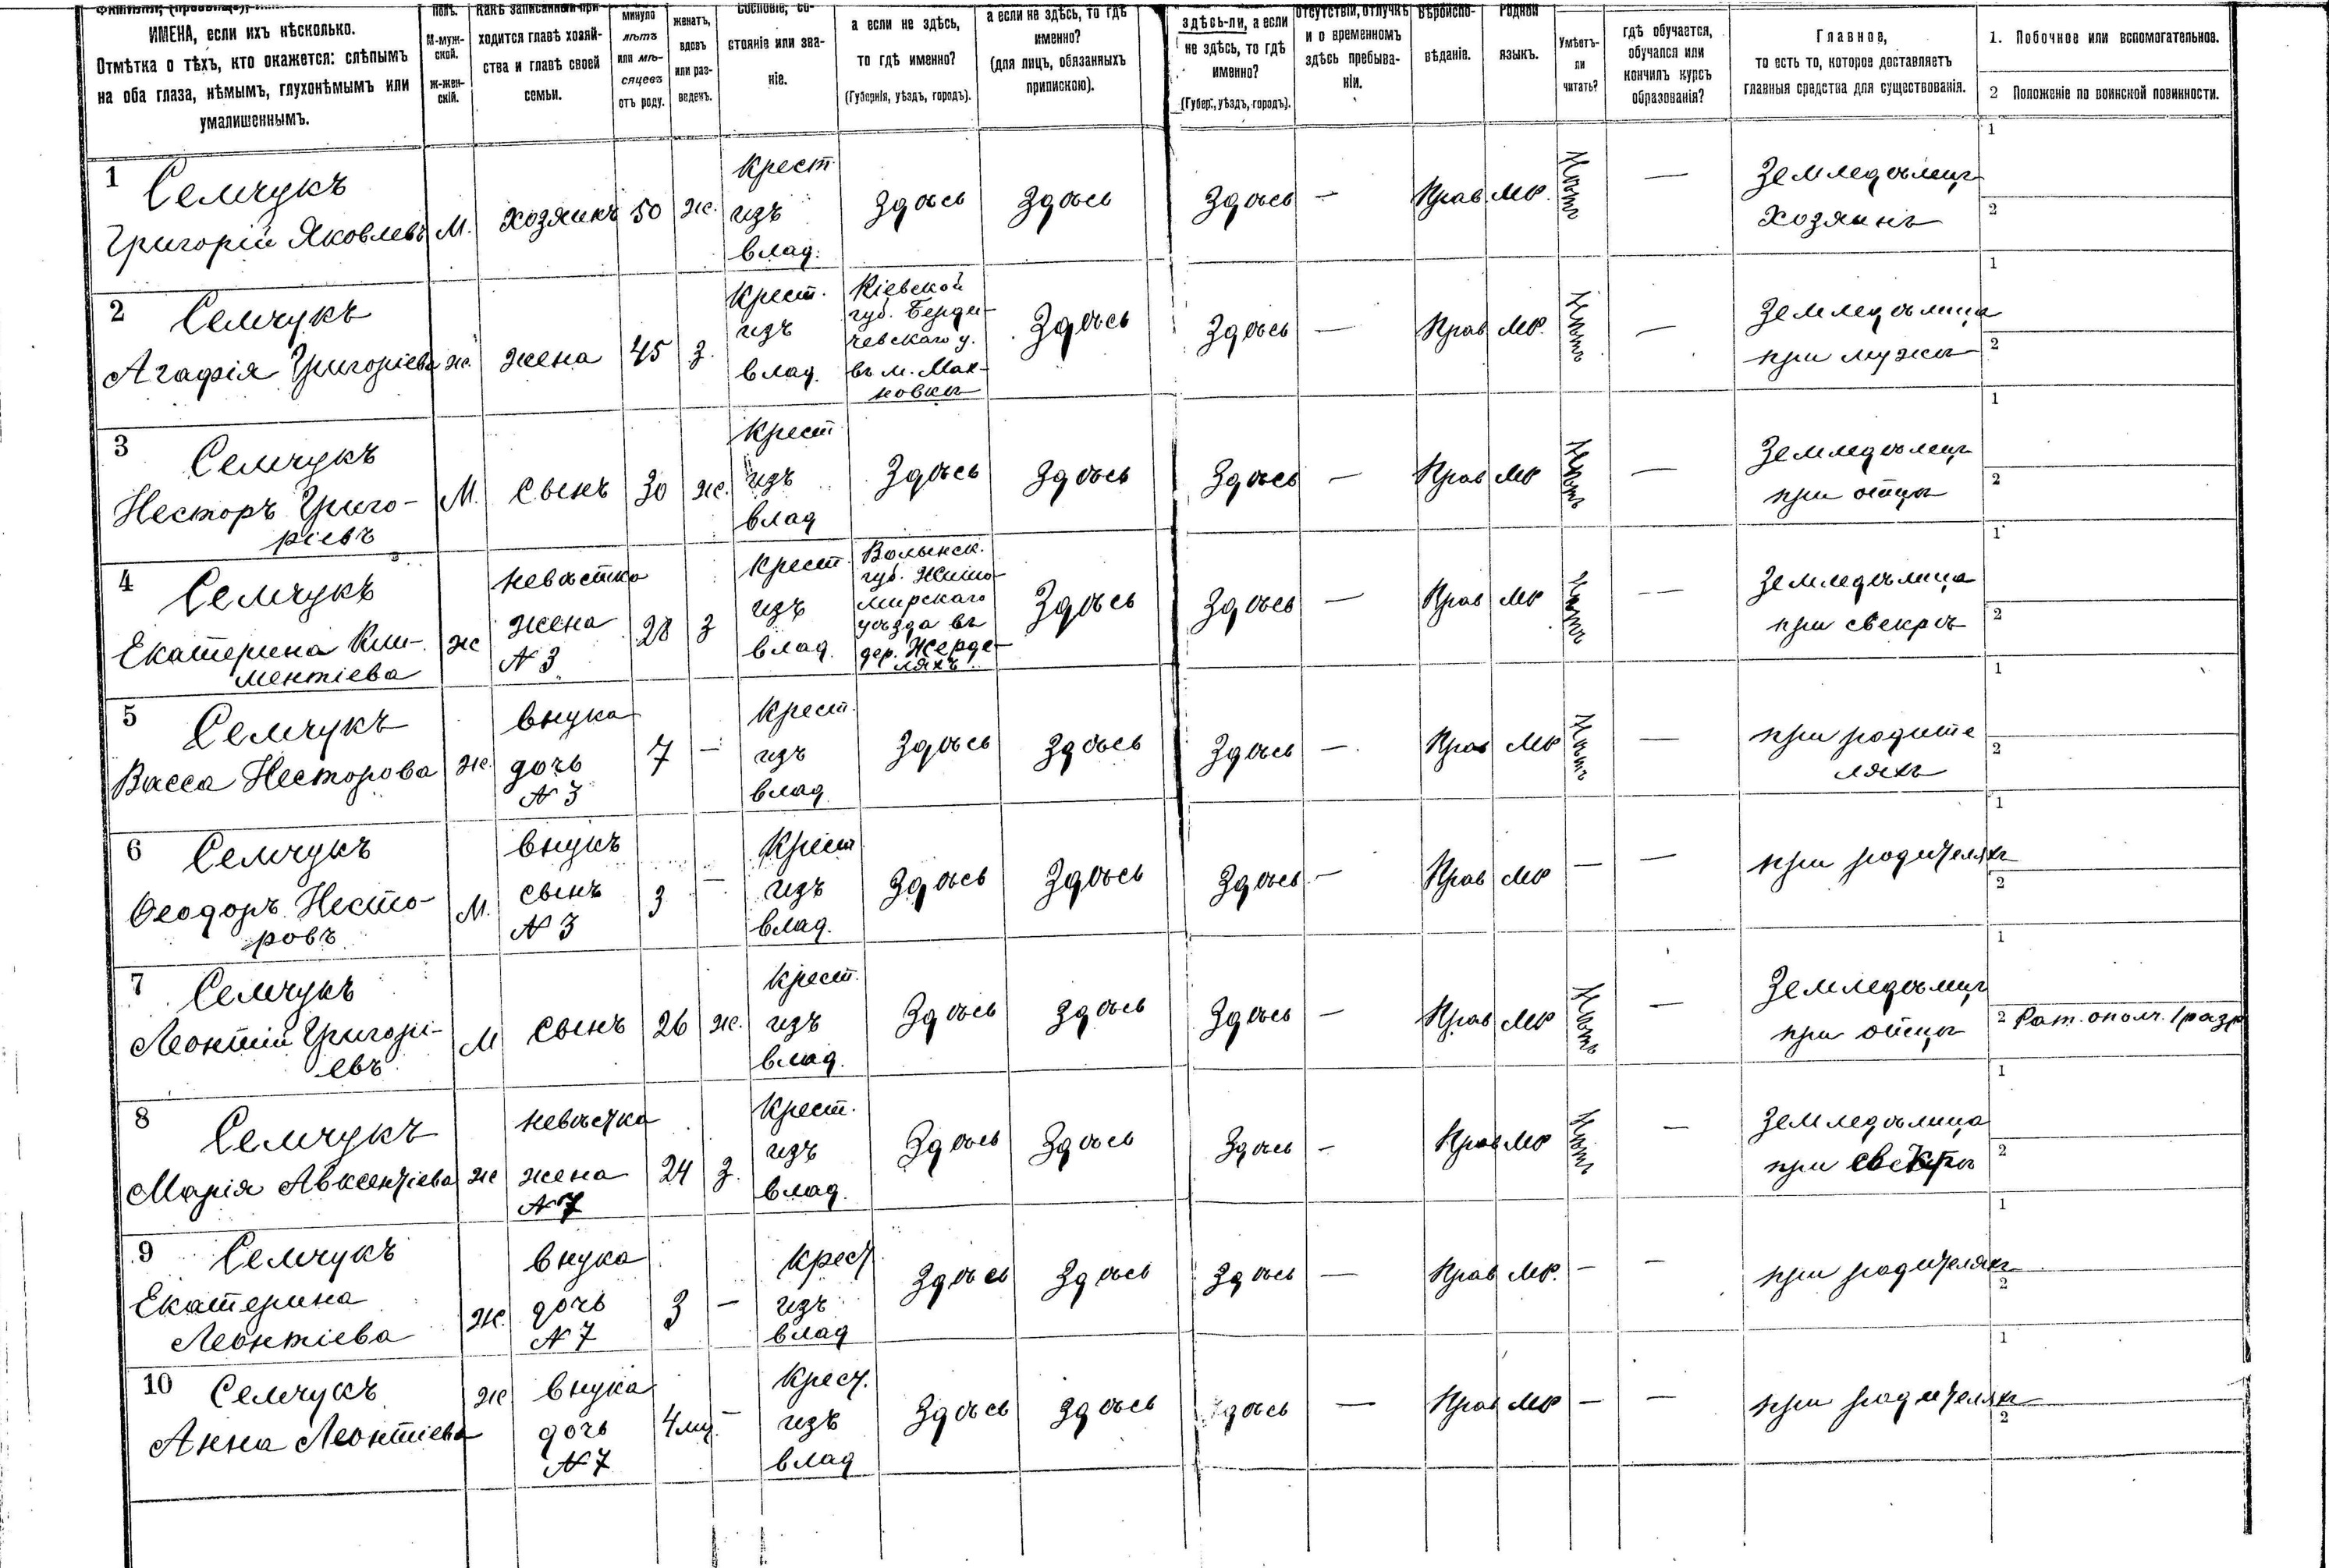 ИМЕНА, если ихъ нѣсколько.
Отмѣтка о тѣхъ, кто окажется: слѣпымъ
на оба глаза, нѣмымъ, глухонѣмымъ или
умалишеннымъ.
полъ.
М-муж-
ской.
Ж-жен-
скій.
какъ записанный при-
ходится главѣ хозяй-
ства и главѣ своей
семьи.
минуло
лѣтъ
или мѣ-
сяцевъ
отъ роду.
женатъ,
вдовъ
или раз-
веденъ.
сословіе, со-
стояніе или зва-
ніе.
а если не здѣсь,
то гдѣ именно?
(Губернія, уѣздъ, городъ).
а если не здѣсь, то гдѣ
именно?
(для лицъ, обязанныхъ
припискою).
здѣсь-ли, а если
не здѣсь, то гдѣ
именно?
(Губер., уѣздъ, городъ).
отсутствіи, отлучкѣ
и о временномъ
здѣсь пребыва-
ніи.
Вѣроиспо-
вѣданіе.
Родной
языкъ.
Умѣетъ-
ли
читать?
гдѣ обучается,
обучался или
кончилъ курсъ
образованія?
Главное,
то есть то, которое доставляетъ
главныя средства для существованія.
1. Побочное или вспомогательное.
2 Положеніе по воинской повинности.
1 Семчукъ
Григорій Яковлевъ
М.
хозяинъ
50
ж.
Крест
изъ
влад.
Здѣсь
Здѣсь
Здѣсь
—
Прав
Мр.
Нѣтъ
—
Земледѣлец
Хозяинъ
1
2
2 Семчукъ
Агафія Григоріева
ж.
жена
45
з.
Крест.
изъ
влад.
Кіевской
губ. Берди-
чевскаго у.
въ м. Мах-
новкѣ
Здѣсь
Здѣсь
—
Прав
Мр.
Нѣтъ
—
Земледѣлица
при мужѣ
1
2
3 Семчукъ
Несторъ Григо-
ріевъ
М.
Сынъ
30
ж.
Крест
изъ
влад
Здѣсь
Здѣсь
Здѣсь
—
Прав
Мр
Нѣтъ
—
Земледѣлец
при отцѣ
1
2
4 Семчукъ
Екатерина Кли-
ментіева
ж
невѣстка
жена
№ 3
28
з
Крест.
изъ
влад.
Волынск.
губ. Жито-
мирскаго
уѣзда въ
дер. Жерде-
ляхъ
Здѣсь
Здѣсь
—
Прав
Мр
Нѣтъ
—
Земледѣлица
при свекрѣ
1
2
5 Семчукъ
Васса Несторова
ж.
внука
дочь
№ 3
7
—
Крест.
изъ
влад
Здѣсь
Здѣсь
Здѣсь
—
Прав
Мр
Нѣтъ
—
при родите
ляхъ
1
2
6 Семчукъ
Ѳеодоръ Несто-
ровъ
М.
внукъ
сынъ
№ 3
3
—
Крест
изъ
влад.
Здѣсь
Здѣсь
Здѣсь
—
Прав
Мр
—
—
при родителяхъ
1
2
7 Семчукъ
Леонтій Григорі-
евъ
М
Сынъ
26
ж.
Крест.
изъ
влад.
Здѣсь
Здѣсь
Здѣсь
—
Прав
Мр
Нѣтъ
—
Земледѣлец
при отцѣ
1
2 Рат. ополч. 1 разр
8 Семчукъ
Марія Авксентіева
ж
невѣстка
жена
№ 7
24
з.
Крест.
изъ
влад.
Здѣсь
Здѣсь
Здѣсь
—
Прав
Мр
Нѣтъ
—
Земледѣлица
при свекрѣ
1
2
9 Семчукъ
Екатерина
Леонтіева
ж.
внука
дочь
№ 7
3
—
Крест
изъ
влад
Здѣсь
Здѣсь
Здѣсь
—
Прав
Мр.
—
—
при родителяхъ
1
2
10 Семчукъ
Анна Леонтіева
ж
внука
дочь
№ 7
4 мц.
—
Крест.
изъ
влад
Здѣсь
Здѣсь
Здѣсь
—
Прав
Мр
—
—
при родителяхъ
1
2